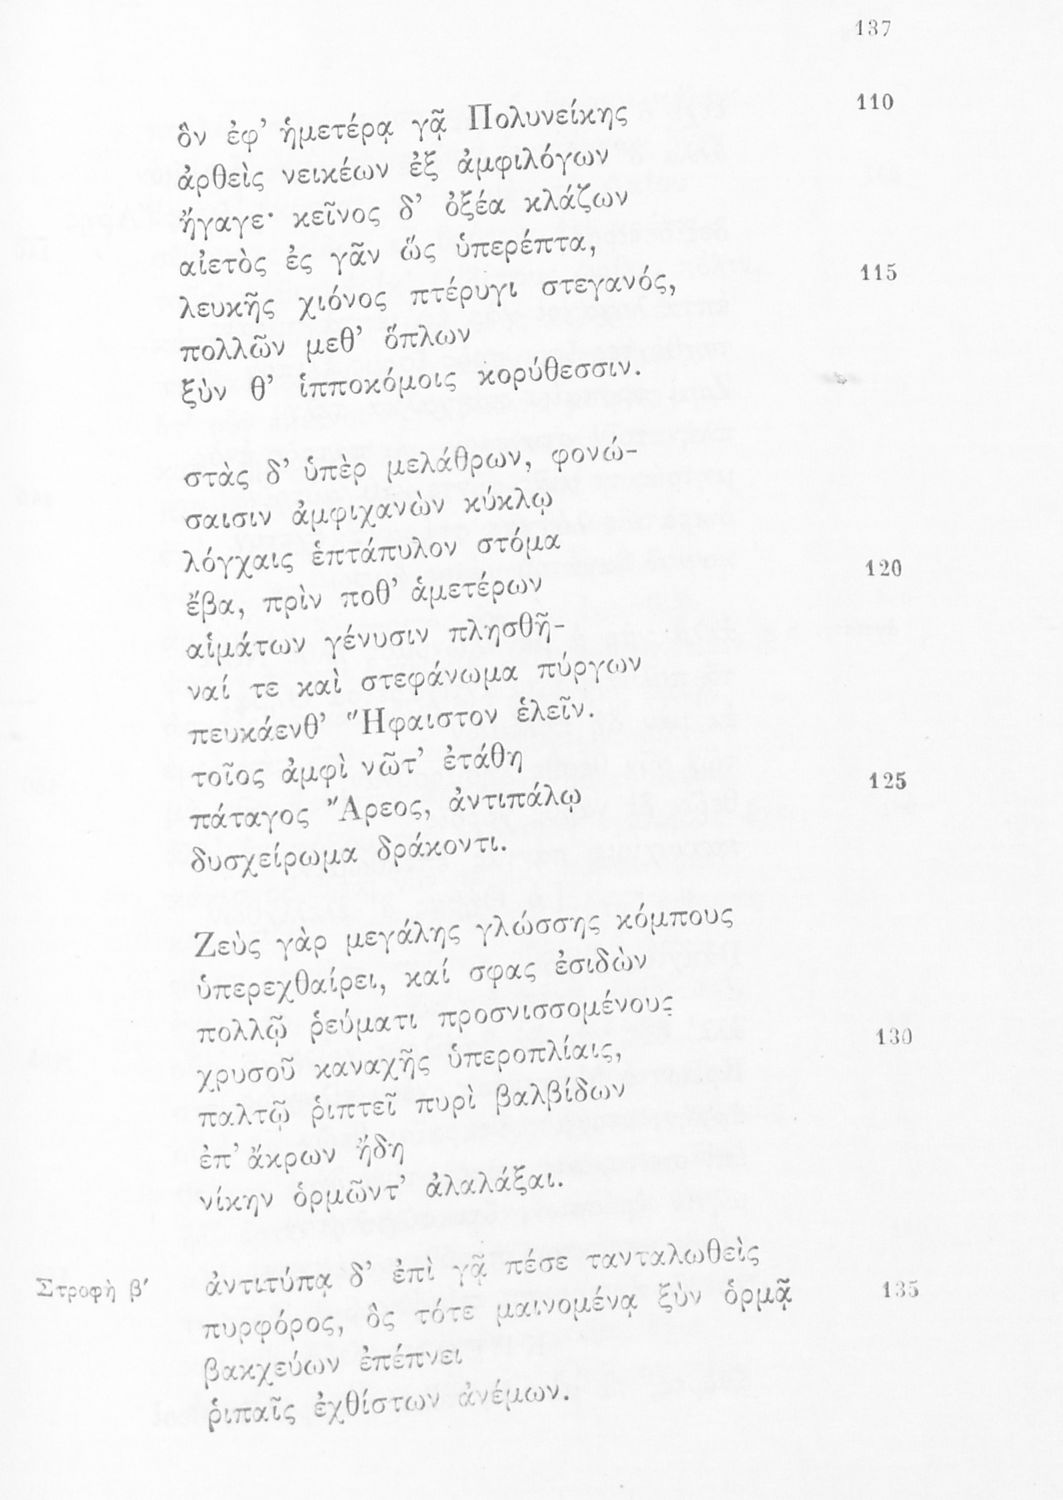 137
ὃν ἐφ' ἡμετέρᾳ γᾷ Πολυνείκης 110
ἀρθεὶς νεικέων ἐξ ἀμφιλόγων
ἤγαγε· κεῖνος δ' ὀξέα κλάζων
αἰετὸς ἐς γᾶν ὣς ὑπερέπτα,
λευκῆς χιόνος πτέρυγι στεγανός, 115
πολλῶν μεθ' ὅπλων
ξύν θ' ἱπποκόμοις κορύθεσσιν.
στὰς δ' ὑπὲρ μελάθρων, φονώ-
σαισιν ἀμφιχανὼν κύκλῳ
λόγχαις ἑπτάπυλον στόμα
ἔβα, πρὶν ποθ' ἁμετέρων 120
αἱμάτων γένυσιν πλησθῆ-
ναί τε καὶ στεφάνωμα πύργων
πευκάενθ' Ἥφαιστον ἑλεῖν.
τοῖος ἀμφὶ νῶτ' ἐτάθη
πάταγος Ἄρεος, ἀντιπάλῳ 125
δυσχείρωμα δράκοντι.
Ζεὺς γὰρ μεγάλης γλώσσης κόμπους
ὑπερεχθαίρει, καί σφας ἐσιδὼν
πολλῷ ῥεύματι προσνισσομένους
χρυσοῦ καναχῆς ὑπεροπλίαις, 130
παλτῷ ῥιπτεῖ πυρὶ βαλβίδων
ἐπ' ἄκρων ἤδη
νίκην ὁρμῶντ' ἀλαλάξαι.
Στροφὴ β' ἀντιτύπᾳ δ' ἐπὶ γᾷ πέσε τανταλωθεὶς
πυρφόρος, ὃς τότε μαινομένᾳ ξὺν ὁρμᾷ 135
βακχεύων ἐπέπνει
ῥιπαῖς ἐχθίστων ἀνέμων.